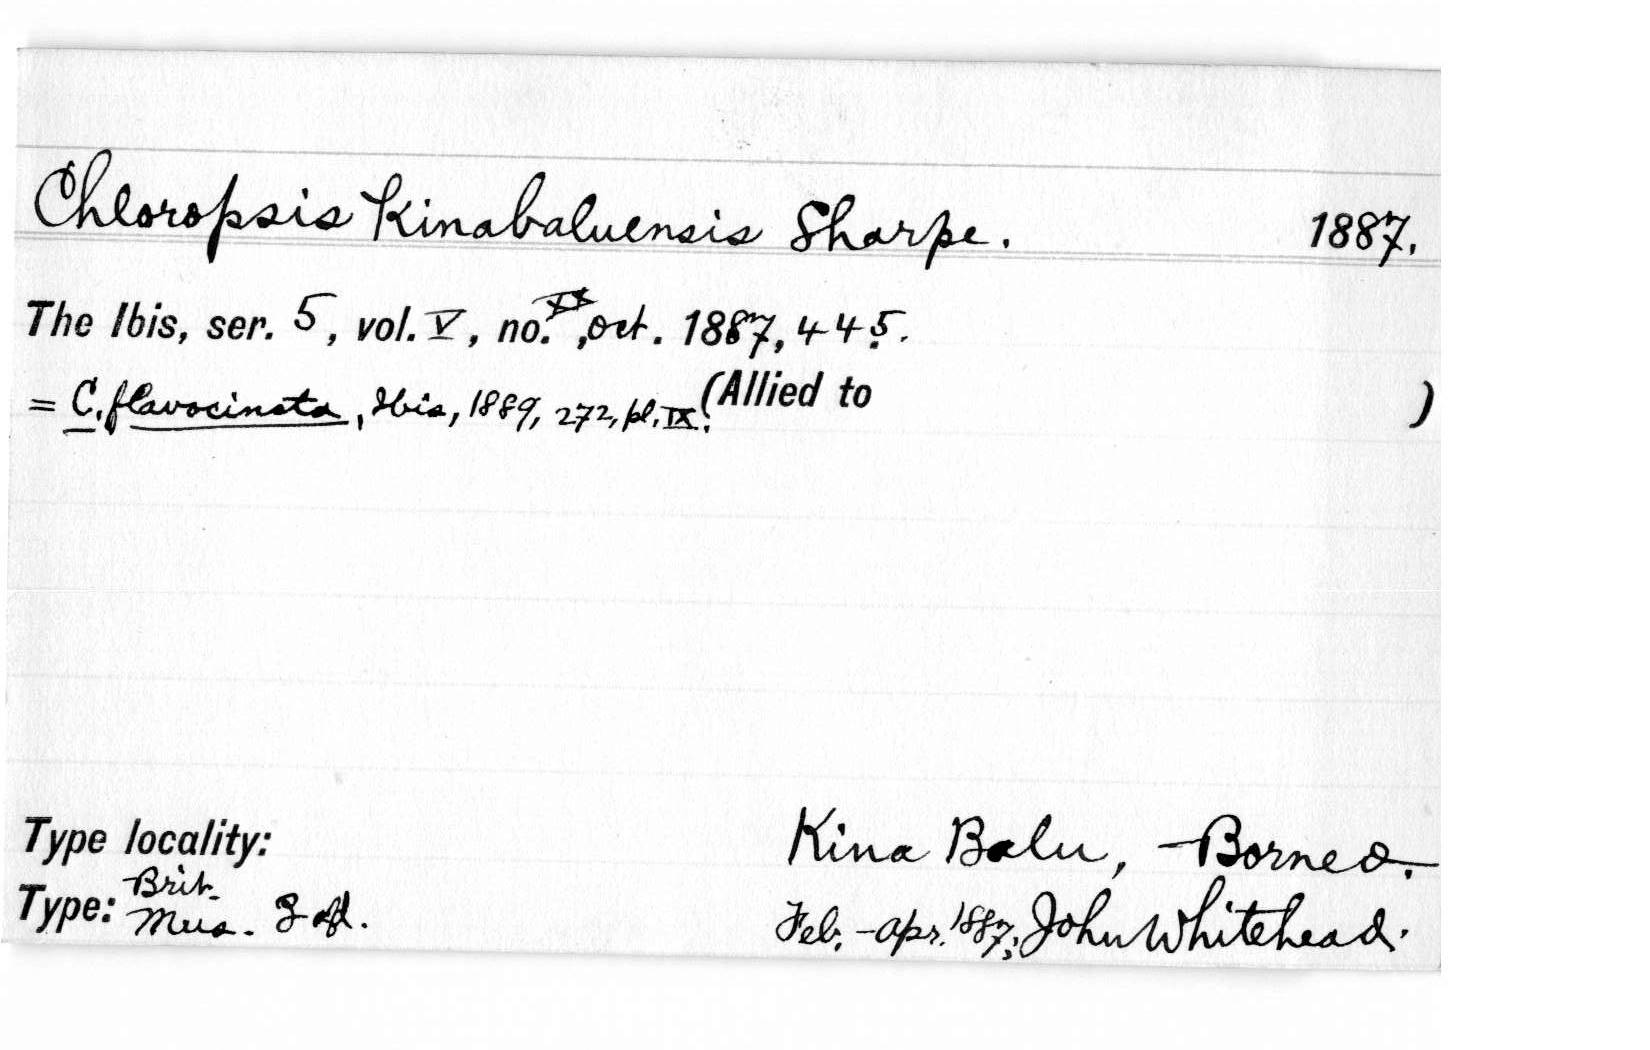 Chloropsis Kinabaluensis Sharpe. 1887.
The Ibis, ser. 5, vol. V, no. XX, Oct. 1887, 445.
= C. flavocincta, Ibis, 1889, 272, pl. IX. (Allied to )
Type locality: Kina Balu, Borneo.
Type: Brit. Mus. Feb. - Apr. 1887, John Whitehead.